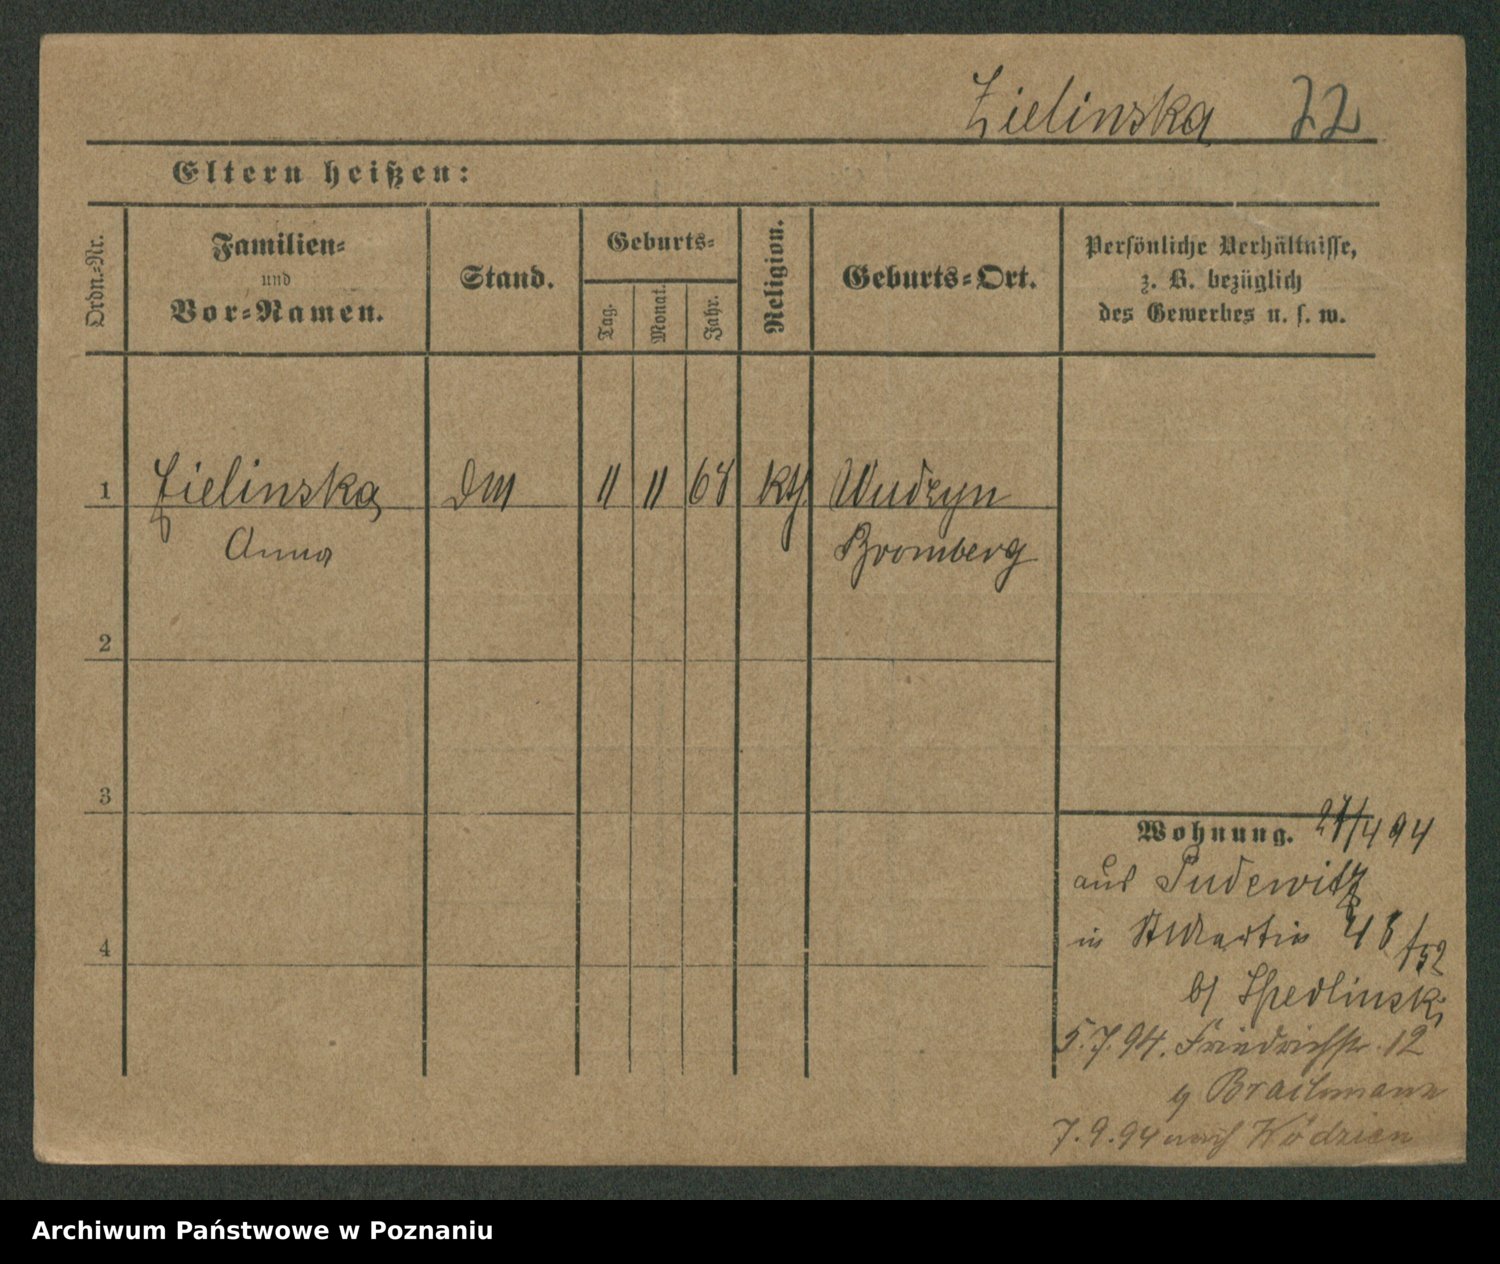 Zielinska 22
Eltern heißen:
Ordn.=Nr.
Familien=
und
Vor=Namen.
Stand.
Geburts=
Tag.
Monat.
Jahr.
Religion.
Geburts=Ort.
Persönliche Verhältnisse,
z. B. bezüglich
des Gewerbes u. s. w.
1 Zielinska DM 11 11 68 kth. Wudzyn
Anna Bromberg
2
3
4
Wohnung. 27/4 94
aus Pudewitz
in St Martin 48/52
b/ Spedlinski
5.7.94. Friedrichstr. 12
7.9.94 nach
Archiwum Państwowe w Poznaniu